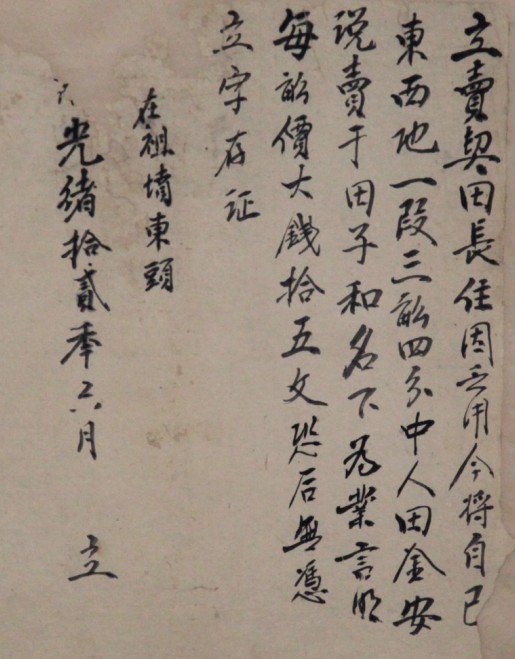 立賣契田長住因乏用今将自己
東西地一段三畝四分中人田金安
说賣于田子和名下為業言明
每畝價大錢拾五文恐后無憑
立字存证
在祖墳東頭
光绪拾贰年六月 立